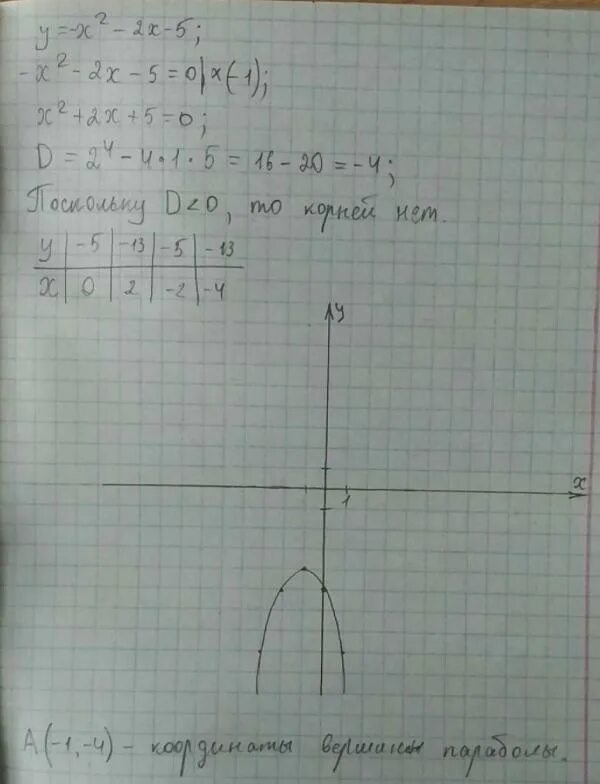 y=-x² - 2x - 5;
-x² - 2x - 5 = 0 | x(-1);
x² + 2x + 5 = 0;
D = 2⁴ - 4·1·5 = 16 - 20 = -4;
Поскольку D<0, то корней нет.
y | -5 | -13 | -5 | -13
x | 0 | 2 | -2 | -4
y
x
1
A(-1,-4) - координаты вершины параболы.